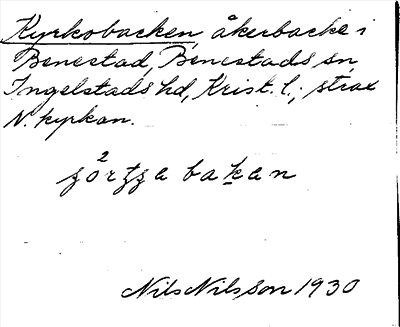 Kyrkobacken, åkerbacke i
Benestad, Benestads sn,
Ingelstads hd, Krist. l.; strax
N. kyrkan.
bakan
Nils Nilsson 1930